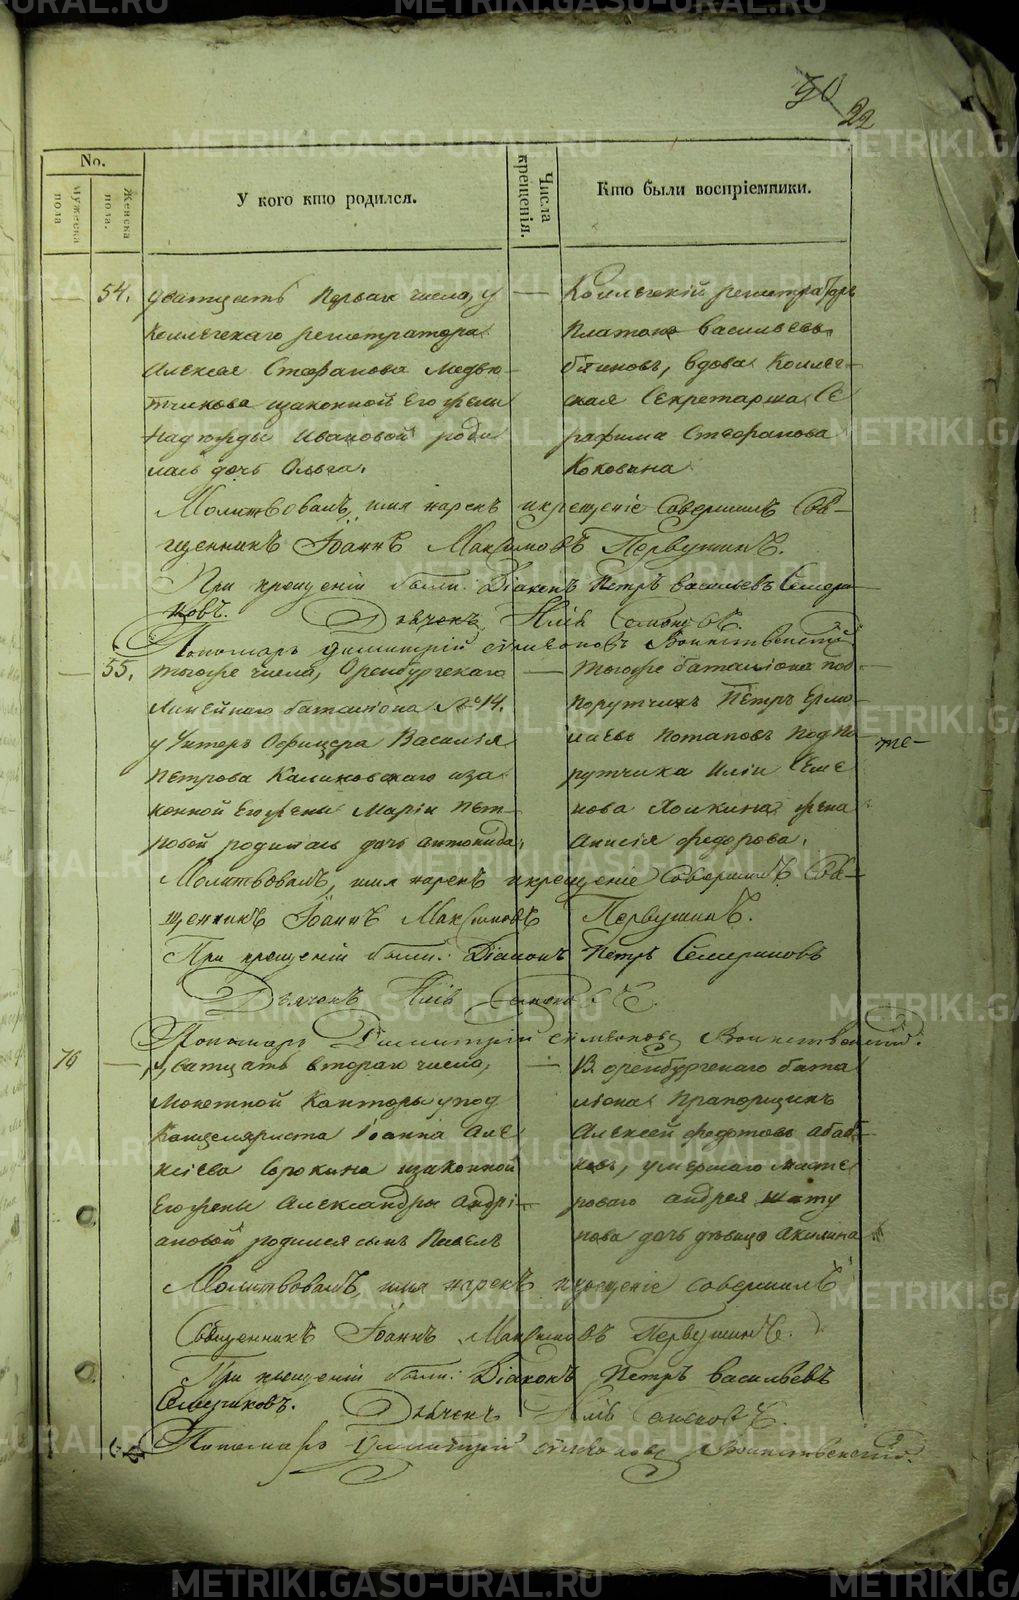 METRIKI.GASO-URAL.RU
30
22
No.
Мужеска пола
Женска пола.
У кого кто родился.
Числа крещенія.
Кто были воспріемники.
54.
дватцать перваго числа, у
Коллежскаго регистратора
Алексея Стефанова Медвю-
тчикова изаконной Его жены
Надежды Ивановой роди
лась дочь Ольга.
Коллежскій регистраторъ
Платонъ Васильевъ
вдова Коллеж-
ская Секретарша Се
рафима Стефанова
Коковина
Молитвовалъ, имя нарекъ икрещеніе Совершилъ Свя-
щенникъ Іоаннъ Максимовъ Первушинъ.
При крещеніи были: Діаконъ Петръ Васильевъ Семери-
ковъ. Дьячекъ
Пономарь Димитрій Воинственскій
55.
тогоже числа, Оренбургскаго
Линейнаго баталіона №14.
у Унтеръ Офицера Василія
Петрова Калиновскаго иза
конной Его жены Маріи Пет-
ровой родилась дочь Антонида,
тогоже баталіона под-
порутчикъ Петръ Ермо
лаевъ Потаповъ Подпо
рутчика Иліи Семе
нова жена
Анисія Федорова.
Молитвовалъ, имя нарекъ икрещеніе Совершилъ Свя-
щенникъ Іоаннъ Максимовъ Первушинъ.
При крещеніи были: Діаконъ Петръ Семериковъ
Дьячекъ
Пономарь Димитрій Воинственскій.
76
дватцать втораго числа,
Монетной Канторы упод
Канцеляриста Іоанна Але
ксіева Сорокина изаконной
Его жены Александры Андрі-
ановой родился сынъ Павелъ
В. оренбургскаго бата
ліона Прапорщикъ
Алексей Федотовъ Абаб-
ковъ, умершаго масте
роваго Андрея Шату
нова дочь девица Акилина
Молитвовалъ, имя нарекъ икрещеніе совершилъ
Священникъ Іоаннъ Максимовъ Первушинъ.
При крещеніи были: Діаконъ Петръ Васильевъ
Семериковъ. Дьячекъ
Пономарь Димитрій Воинственскій.